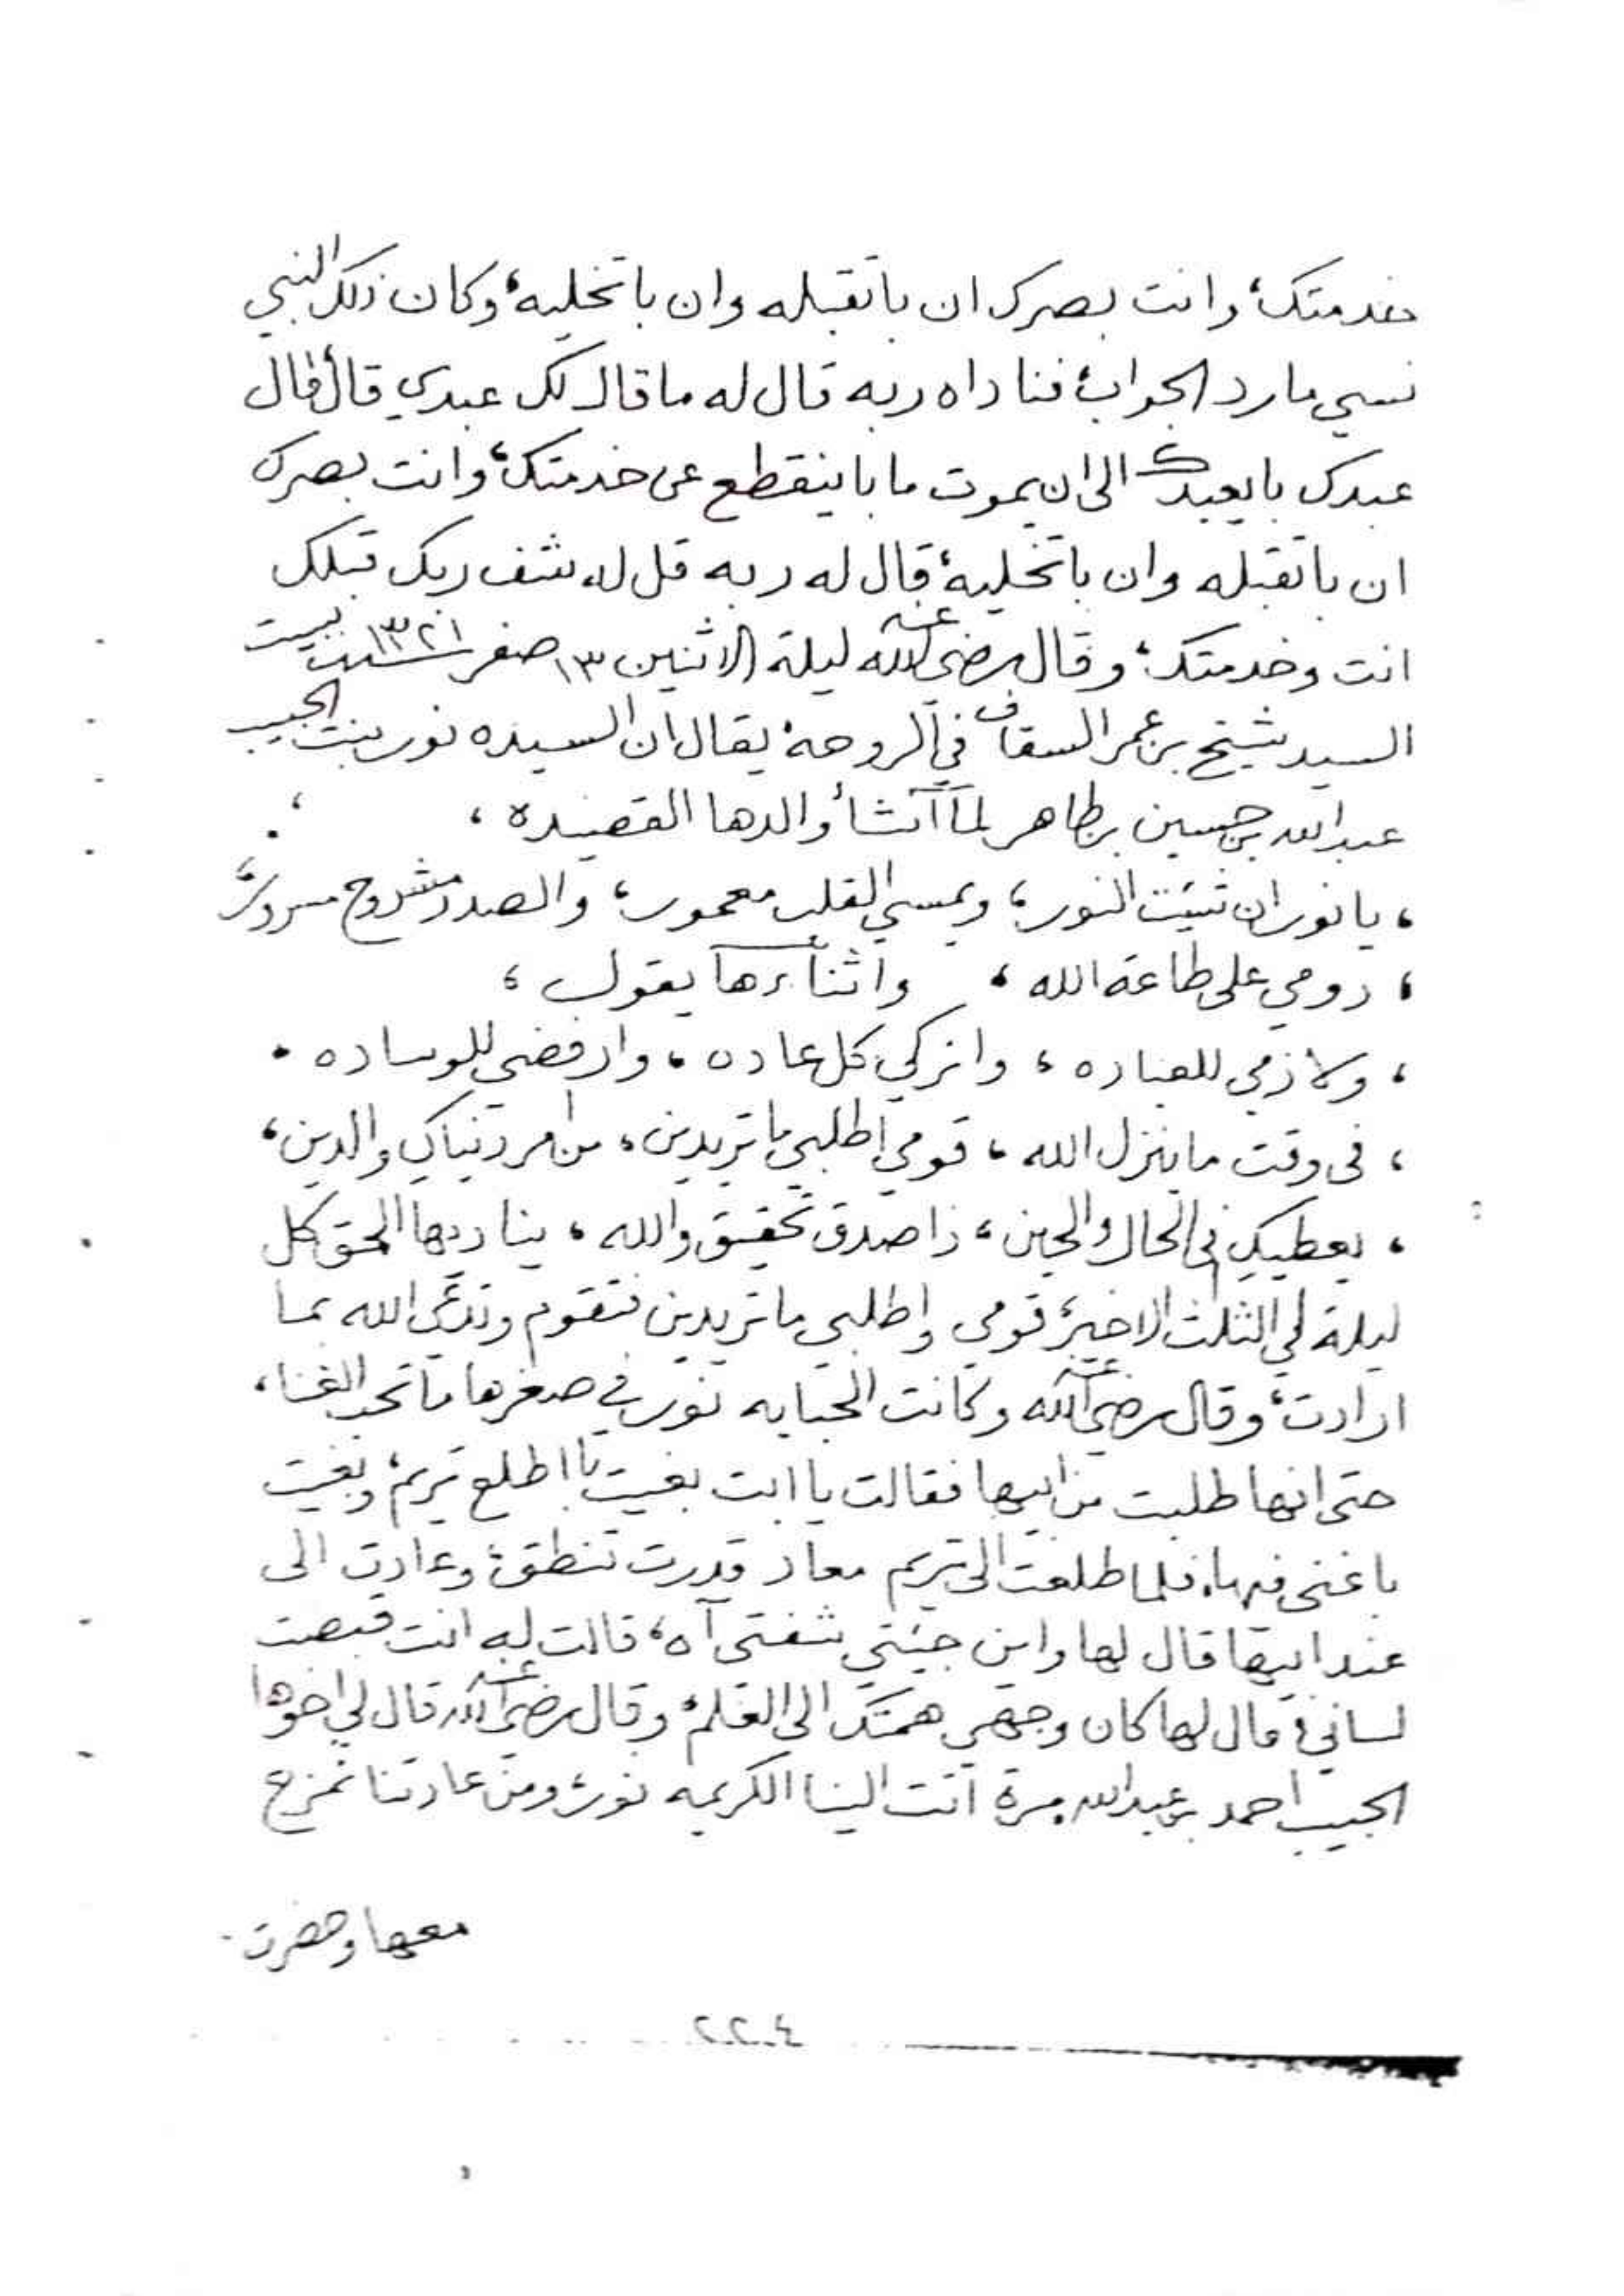 خدمتك، وانت بصرك ان باتقبله وان باتخليه، وكان ذلك النبي
نسي مارد الجواب، فناداه ربه قال له ما قال لك عبدي قال قال
عبدك بايعبدك الى ان يموت ما باينقطع عن خدمتك، وانت بصرك
ان باتقبله وان باتخليه، قال له ربه قل له شف ربك قبلك
انت وخدمتك، وقال رضي الله عنه ليلة الاثنين ١٣ صفر سنة ١٣٢١ ببيت
السيد شيخ بن عمر السقاف في الروحة، يقال ان السيده نور بنت الحبيب
عبدالله بن حسين بن طاهر لما أنشأ والدها القصيده ،
، يا نور ان شيت النور ، ويمسي القلب معمور ، والصدر مشروح مسرور ،
، دومي على طاعة الله ، واثناءها يقول ،
، ولازمي للعباده ، واتركي كل عاده ، وارفضي للوساده .
، في وقت ما ينزل الله ، قومي اطلبي ما تريدين ، من امر دنياك والدين ،
، يعطيك في الحال والحين ، ذا صدق تحقيق والله ، يناديها الحق كل
ليلة في الثلث الاخير، قومي واطلبي ما تريدين فتقوم وتدعي الله بما
ارادت، وقال رضي الله عنه وكانت الحبابه نور في صغرها تحب الغنا ،
حتى انها طلبت من ابيها فقالت يا ابت بغيت با اطلع تريم، وبغيت
باغني فيها، فلما طلعت الى تريم معاد قدرت تنطق، وعادت الى
عند ابيها قال لها واين جيتي شفتي آه، قالت له انت قبصت
لساني، قال لها كان وجهي همتك الى العلم، وقال رضي الله عنه قال لي اخوها
الحبيب احمد بن عبدالله مرة اتت الينا الكريمه نور، ومن عادتنا نمزح
معها وحضرت
٢٢٠٤